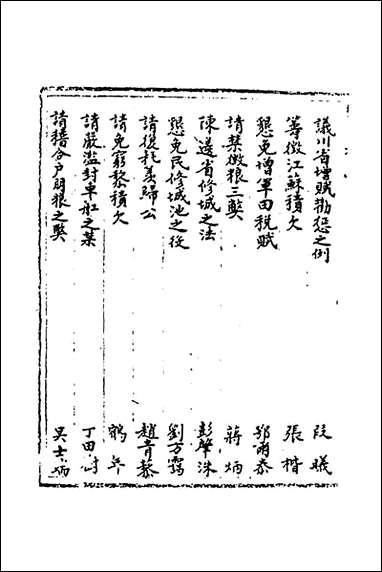 議川省增賦勸懲之例 段曦
籌徵江蘇積欠 張楷
懇免增軍田税賦 鄂爾泰
請禁徵粮三弊 蔣炳
陳邊省修城之法 彭肇洙
懇免民修城池之役 劉方靄
請復耗羡歸公 趙青藜
請免窮黎積欠 鶴年
請嚴濫封車船之禁 丁田澍
請稽分户朋粮之弊 吴士